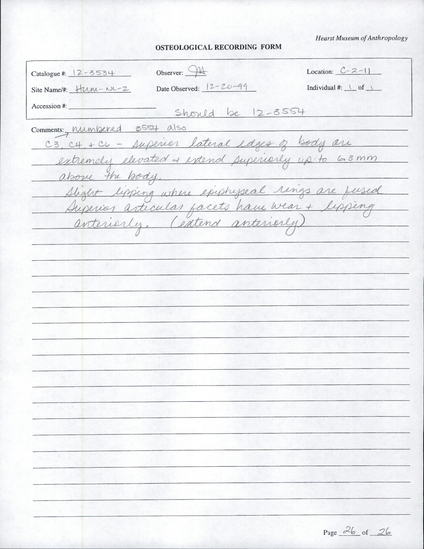 Hearst Museum of Anthropology
OSTEOLOGICAL RECORDING FORM
Catalogue #: 12-3534 Observer: Location: C-2-11
Site Name/#: Hum-NL-2 Date Observed: 12-20-99 Individual #: 1 of 1
Accession #:
Should be 12-3554
Comments: numbered 3554 also
C3 C4 + C6 - superior lateral edges of body are
extremely elevated + extend superiorly up to 6.3 mm
above the body.
Slight lipping where epiphyseal rings are fused
Superior articular facets have wear + lipping
anteriorly. (extend anteriorly)
Page 26 of 26